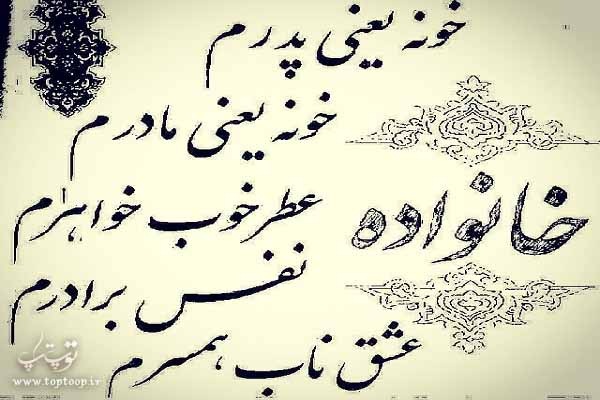 خونه یعنی پدرم
خونه یعنی مادرم
خانواده
عطر خوب خواهرم
نفس برادرم
عشق ناب همسرم
توپتاپ
www.toptoop.ir